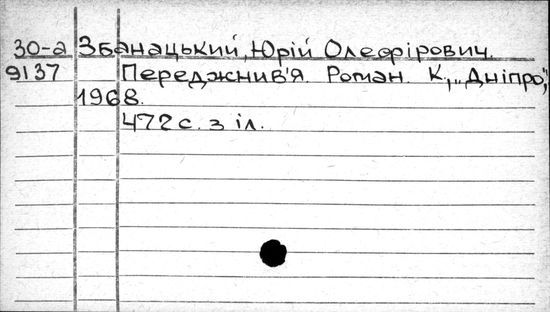 30-а Збанацький, Юрій Олефірович.
9137 Переджнив'я. Роман. К., „Дніпро",
1968.
472 с. з іл.